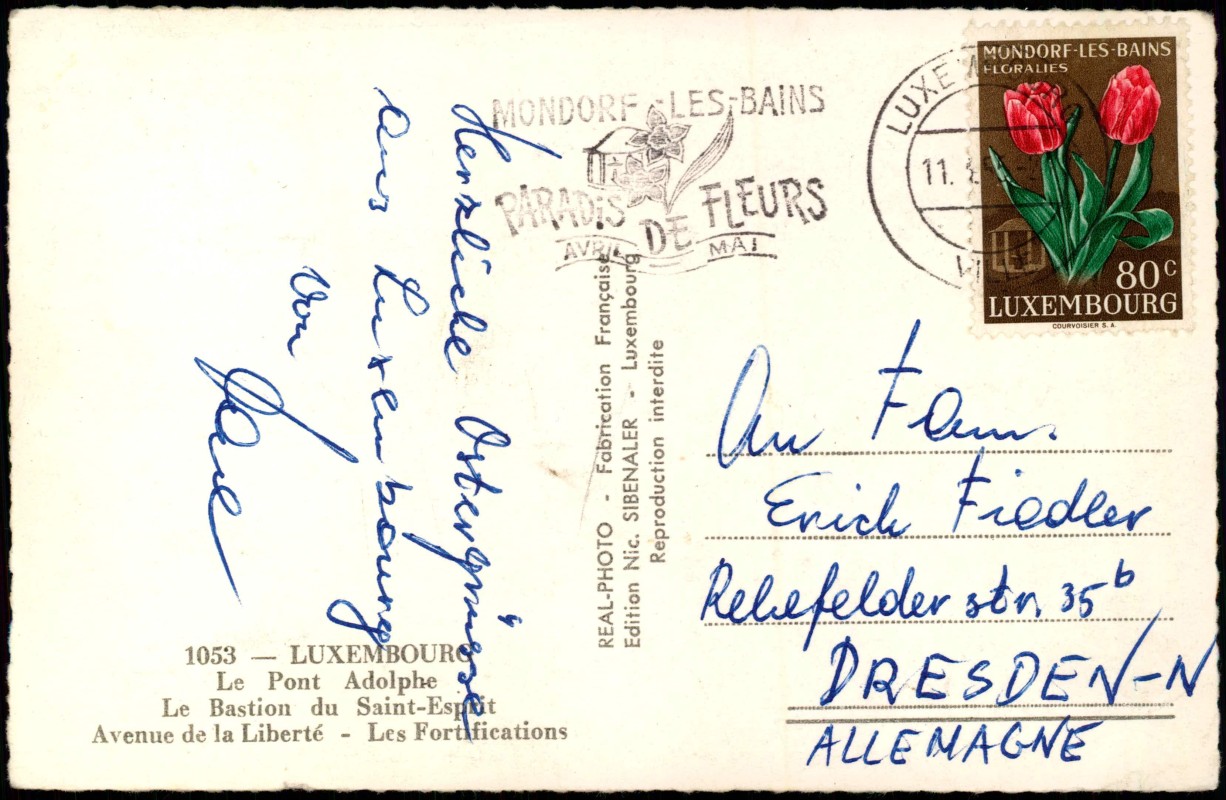 Herzliche Ostergrüsse
aus Luxembourg
von
MONDORF-LES-BAINS
PARADIS DE FLEURS
AVRIL MAI
LUXE
11.
VILLE
MONDORF-LES-BAINS
FLORALIES
80c
LUXEMBOURG
COURVOISIER S. A.
REAL-PHOTO - Fabrication Française
Edition Nic. SIBENALER - Luxembourg
Reproduction interdite
An Fam.
Erich Fiedler
Rehefelder str. 35b
DRESDEN-N
ALLEMAGNE
1053 — LUXEMBOURG
Le Pont Adolphe
Le Bastion du Saint-Esprit
Avenue de la Liberté - Les Fortifications